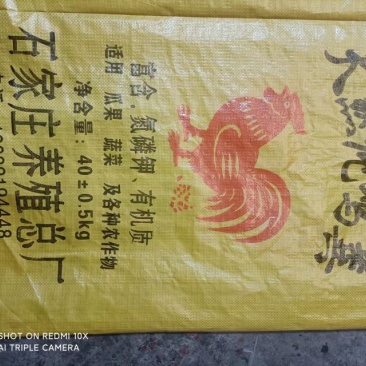 天然纯鸡粪
富含:氮磷钾、有机质
适用 瓜果 蔬菜 及各种农作物
净含量:40±0.5kg
石家庄养殖总厂
SHOT ON REDMI 10X
AI TRIPLE CAMERA